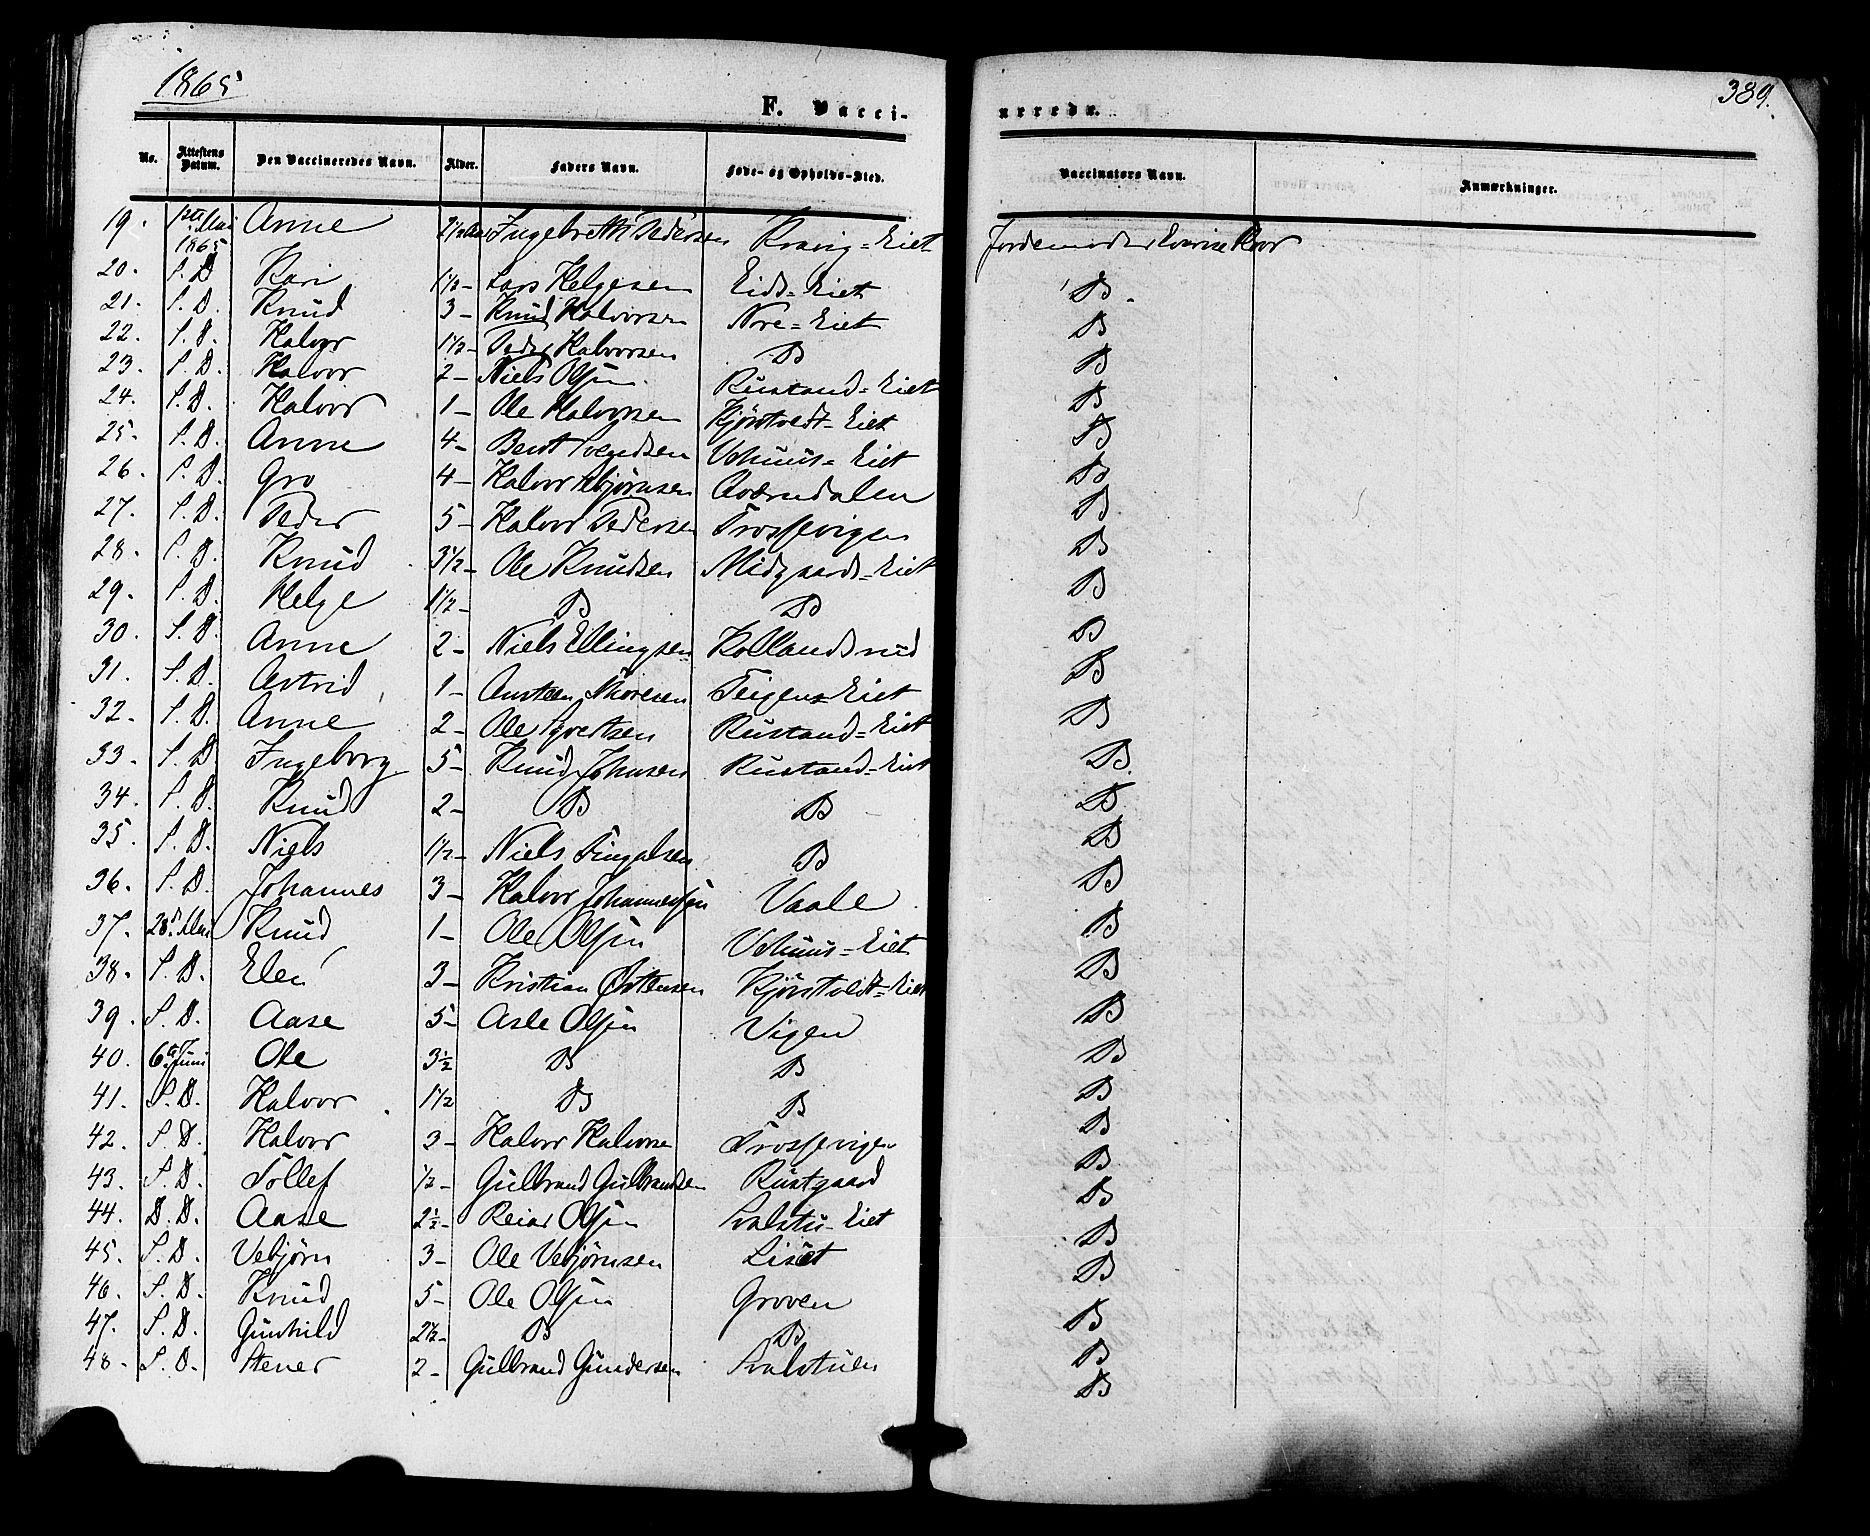 1865
389.
F. Vacci-
nerede.
No. Attestens Datum. Den Vaccineredes Navn. Alder. Faders Navn. Føde- og Opholds-Sted. Vaccinators Navn. Anmærkninger.
19. 1ste Mai 1865 Anne 2 1/2 Aar Ingebreth Pedersen Kravig=Eiet Jordemoder
20. S. D. Kari 1 1/2 - Lars Helgesen Eids=Eiet D.
21. S. D. Knud 3 - Knud Halvorsen Nore=Eiet D
22. S. D. Halvor 1 1/2 - Peder Halvorsen D D
23. S. D. Halvor 2 - Niels Olsen Rustand=Eiet D
24. S. D. Halvor 1 - Ole Halvorsen Kjørstveldt=Eiet D
25. S. D. Anne 4 - Bent Svendsen Vehuus=Eiet D
26. S. D. Gro 4 - Halvor Ebjørnsen Qværndalen D
27. S. D. Peder 5 - Halvor Pedersen Frossevigen D
28. S. D. Knud 3 1/2 - Ole Knudsen Midgaards=Eiet D
29. S. D. Helge 1 1/2 - D D D
30. S. D. Anne 2 - Niels Ellingsen Kollandsrud D
31. S. D. Astrid 1 - Austeen Thoresen Teigens Eiet D
32. S. D. Anne 2 - Ole Syvertsen Rustand=Eiet D
33. S. D. Ingeborg 5 - Knud Johnsen Rustand=Eiet D.
34. S. D. Knud 2 - D D D
35. S. D. Niels 1 1/2 - Niels Fingalsen D D
36. S. D. Johannes 3 - Halvor Johannessen Vaale D
37. 28de Mai Knud 1 - Ole Olsen Vehuus=Eiet D
38. S. D. Elen 3 - Kristian Østensen Kjørstveldt=Eiet D
39. S. D. Aase 5 - Asle Olsen Vigen D
40. 6te Juni Ole 3 1/2 D D D
41. S. D. Halvor 1 1/2 D D D
42. S. D. Halvor 3 - Halvor Halvorse Frossevigen D
43. S. D. Tollef 1/2 - Gulbrand Gulbrandsen Rustgaard D
44. D. D. Aase 2 1/2 - Reiar Olsen Svalstu=Eiet D
45. S. D. Vebjørn 3 - Ole Vebjørnsen Liset D
46. S. D. Knud 5 - Ole Olsen Groven D
47. S. D. Gunhild 2 1/2 - D D D
48. S. D. Stener 2 - Gulbrand Gundersen Svalstuen D
D